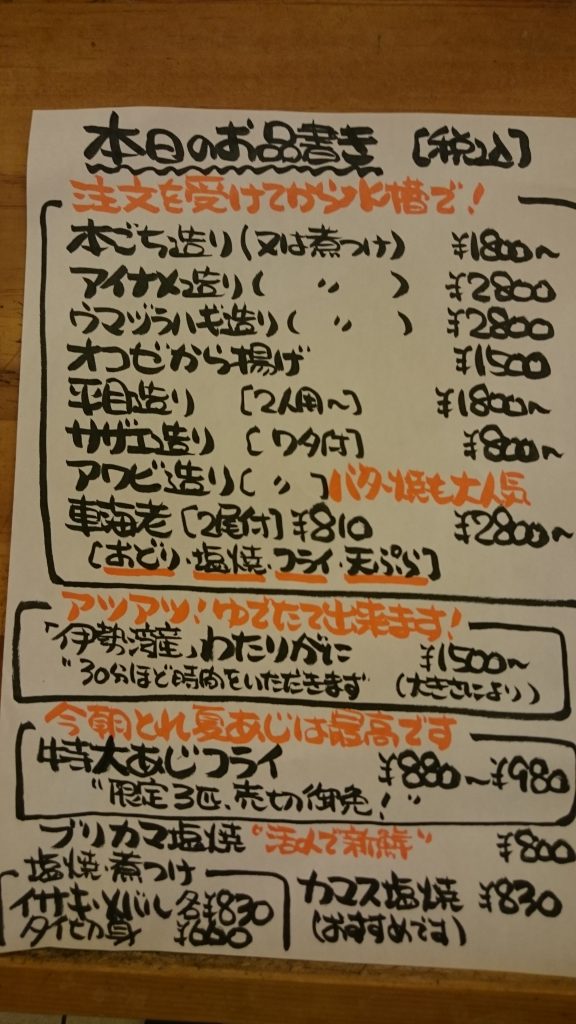 本日のお品書き [税込]
注文を受けてから水槽で!
本ごち造り(又は煮つけ) ¥1800~
アイナメ造り( 〃 ) ¥2800
ウマヅラハギ造り( 〃 ) ¥2800
オコゼから揚げ ¥1500
平目造り [2人用~] ¥1800~
サザエ造り [ワタ付] ¥800~
アワビ造り[〃]バター焼も大人気
車海老[2尾付]¥810 ¥2800~
[おどり・塩焼・フライ・天ぷら]
アツアツ!ゆでたて出来ます!
「伊勢湾産」わたりがに ¥1500~
"30分ほど時間をいただきます (大きさにより)
今朝とれ夏あじは最高です
特大あじフライ ¥880~¥980
"限定3匹、売切御免!"
ブリカマ塩焼 "活〆で新鮮" ¥800
塩焼・煮つけ
イサキ・メバル 各¥830
タイ切身 ¥660
カマス塩焼 ¥830
(おすすめです)